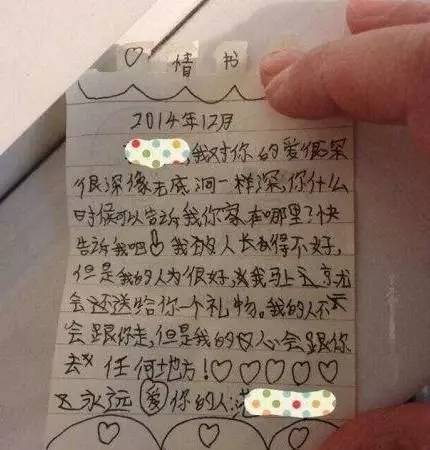 ♡情书
2014年12月
,我对你的爱很深
很深像无底洞一样深,你什么
时候可以告诉我你家在哪里?快
告诉我吧 我 人长 得不好,
但是我的人为很好,我马上
会还送给你一个礼物。我的人不
会跟你走,但是我的心会跟你
去 任何地方!♡♡♡♡♡
永远爱你的人: